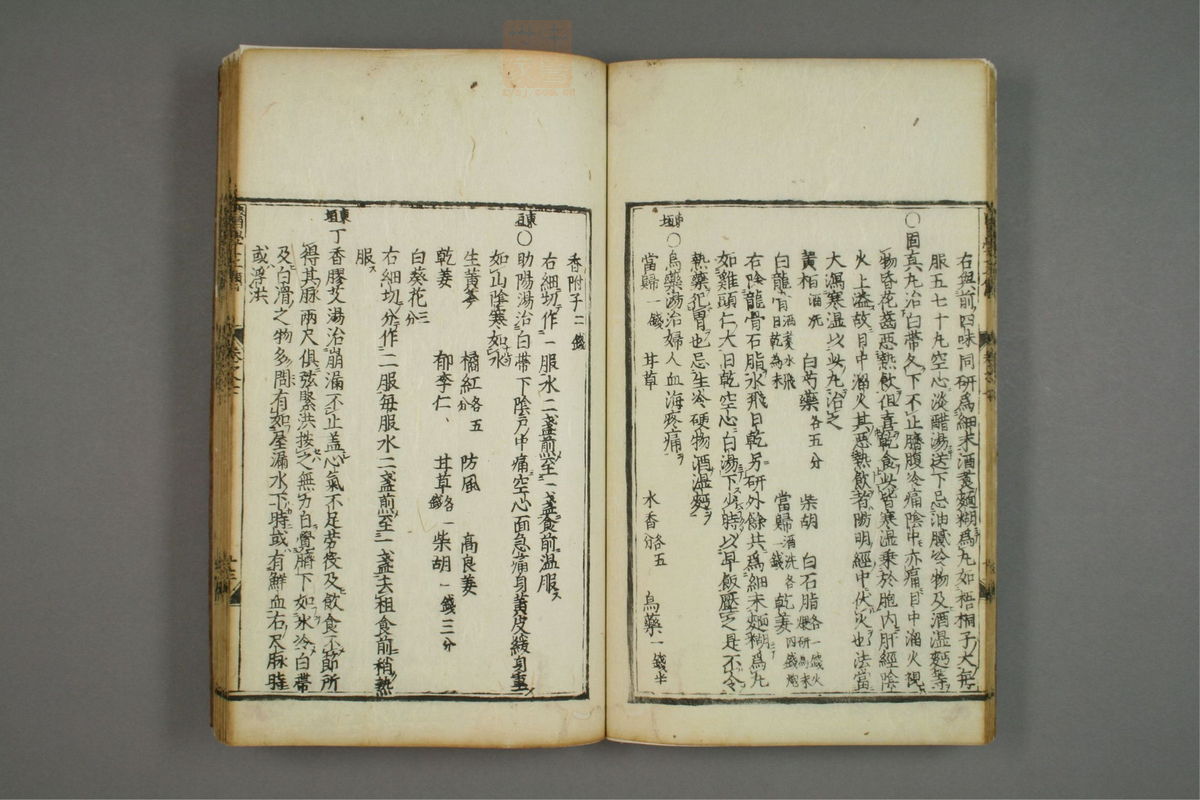 右與前四味同研爲細末酒煮麵糊爲丸如梧桐子大每
服五七十丸空心淡醋湯送下忌油膩冷物及酒湿麵等
○固真丸治白帶久下不止臍腹冷痛陰中亦痛目中溜火視
物昏花齒惡熱飲但喜乾食此皆寒湿乗於胞内肝經陰
火上溢故目中溜火其惡熱飲者陽明經中伏火也法當
大瀉寒湿以此丸治之
黄栢酒洗 白芍藥各五分 柴胡 白石脂各一錢火煆研爲末
白龍骨酒煮水飛日乾為末 當歸酒洗各一錢 乾姜四錢炮
右除龍骨石脂水飛日乾另研外餘共爲細末麵糊爲丸
如雞頭仁大日乾空心白湯下少時以早飯壓之是不令
熱藥犯胃也忌生冷硬物酒湿麵
東垣○烏藥湯治婦人血海疼痛
當歸一錢 甘草 木香各五分 烏藥一錢半
香附子二錢
右細切作一服水二盞煎至一盞食前温服
東垣○助陽湯治白帶下陰戶中痛空心面急痛身黄皮緩身重
如山陰寒如水
生黄芩 橘紅各五分 防風 高良姜
乾姜 郁李仁 甘草各一錢 柴胡一錢三分
白葵花三分
右細切分作二服每服水二盞煎至一盞去粗食前稍熱
服
東垣丁香膠艾湯治崩漏不止盖心氣不足劳役及飲食不節所
得其脉兩尺俱弦緊洪按之無力白覺臍下如氷冷白帶
及白滑之物多間有如屋漏水下時或有鮮血右尺脉時
或浮洪